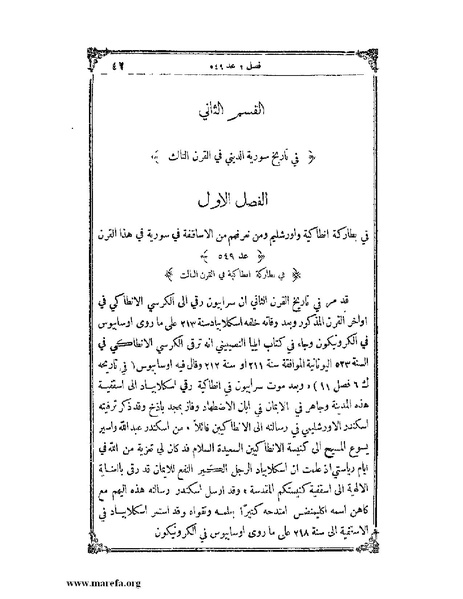 فصل ١ عد ٥٤٩ ٤٧
القسم الثاني
﴿ في تاريخ سورية الديني في القرن الثالث ﴾
الفصل الاول
في بطاركة انطاكية واورشليم ومن نعرفهم من الاساقفة في سورية في هذا القرن
﴿ عد ٥٤٩ ﴾
﴿ في بطاركة انطاكية في القرن الثالث ﴾
قد مر في تاريخ القرن الثاني ان سرابيون رقي الى الكرسي الانطاكي في
اواخر القرن المذكور وبعد وفاته خلفه اسكلابيادسنة ٢١٣ على ما روى اوسابيوس
في الكرونيكون وجاء في كتاب ايليا النصيبيني انه ترقى الكرسي الانطاكي في
السنة ٥٢٣ اليونانية الموافقة سنة ٢١١ او سنة ٢١٢ وقال فيه اوسابيوس ( في تاريخه
ك ٦ فصل ١١ ) : وبعد موت سرابيون في انطاكية رقي اسكلابياد الى اسقفية
هذه المدينة وجاهر في الايمان في ابان الاضطهاد وفاز بمجد باذخ وقد ذكر ترقيته
اسكندر الاورشليمي في رسالته الى الانطاكيين قائلاً . من اسكندر عبد الله واسير
يسوع المسيح الى كنيسة الانطاكيين السعيدة السلام قد كان لي تعزية من الله في
ايام رياستي اذ علمت ان اسكلابياد الرجل الغيور للايمان قد رقي بالعناية
الالهية الى اسقفية كنيستكم المقدسة ؛ وقد ارسل اسكندر رسالته هذه اليهم مع
كاهن اسمه اكليمنضس امتدحه كثيرًا بعلمه وتقواه وقد استمر اسكلابياد في
الاسقفية الى سنة ٢١٨ على ما روى اوسابيوس في الكرونيكون
www.marefa.org